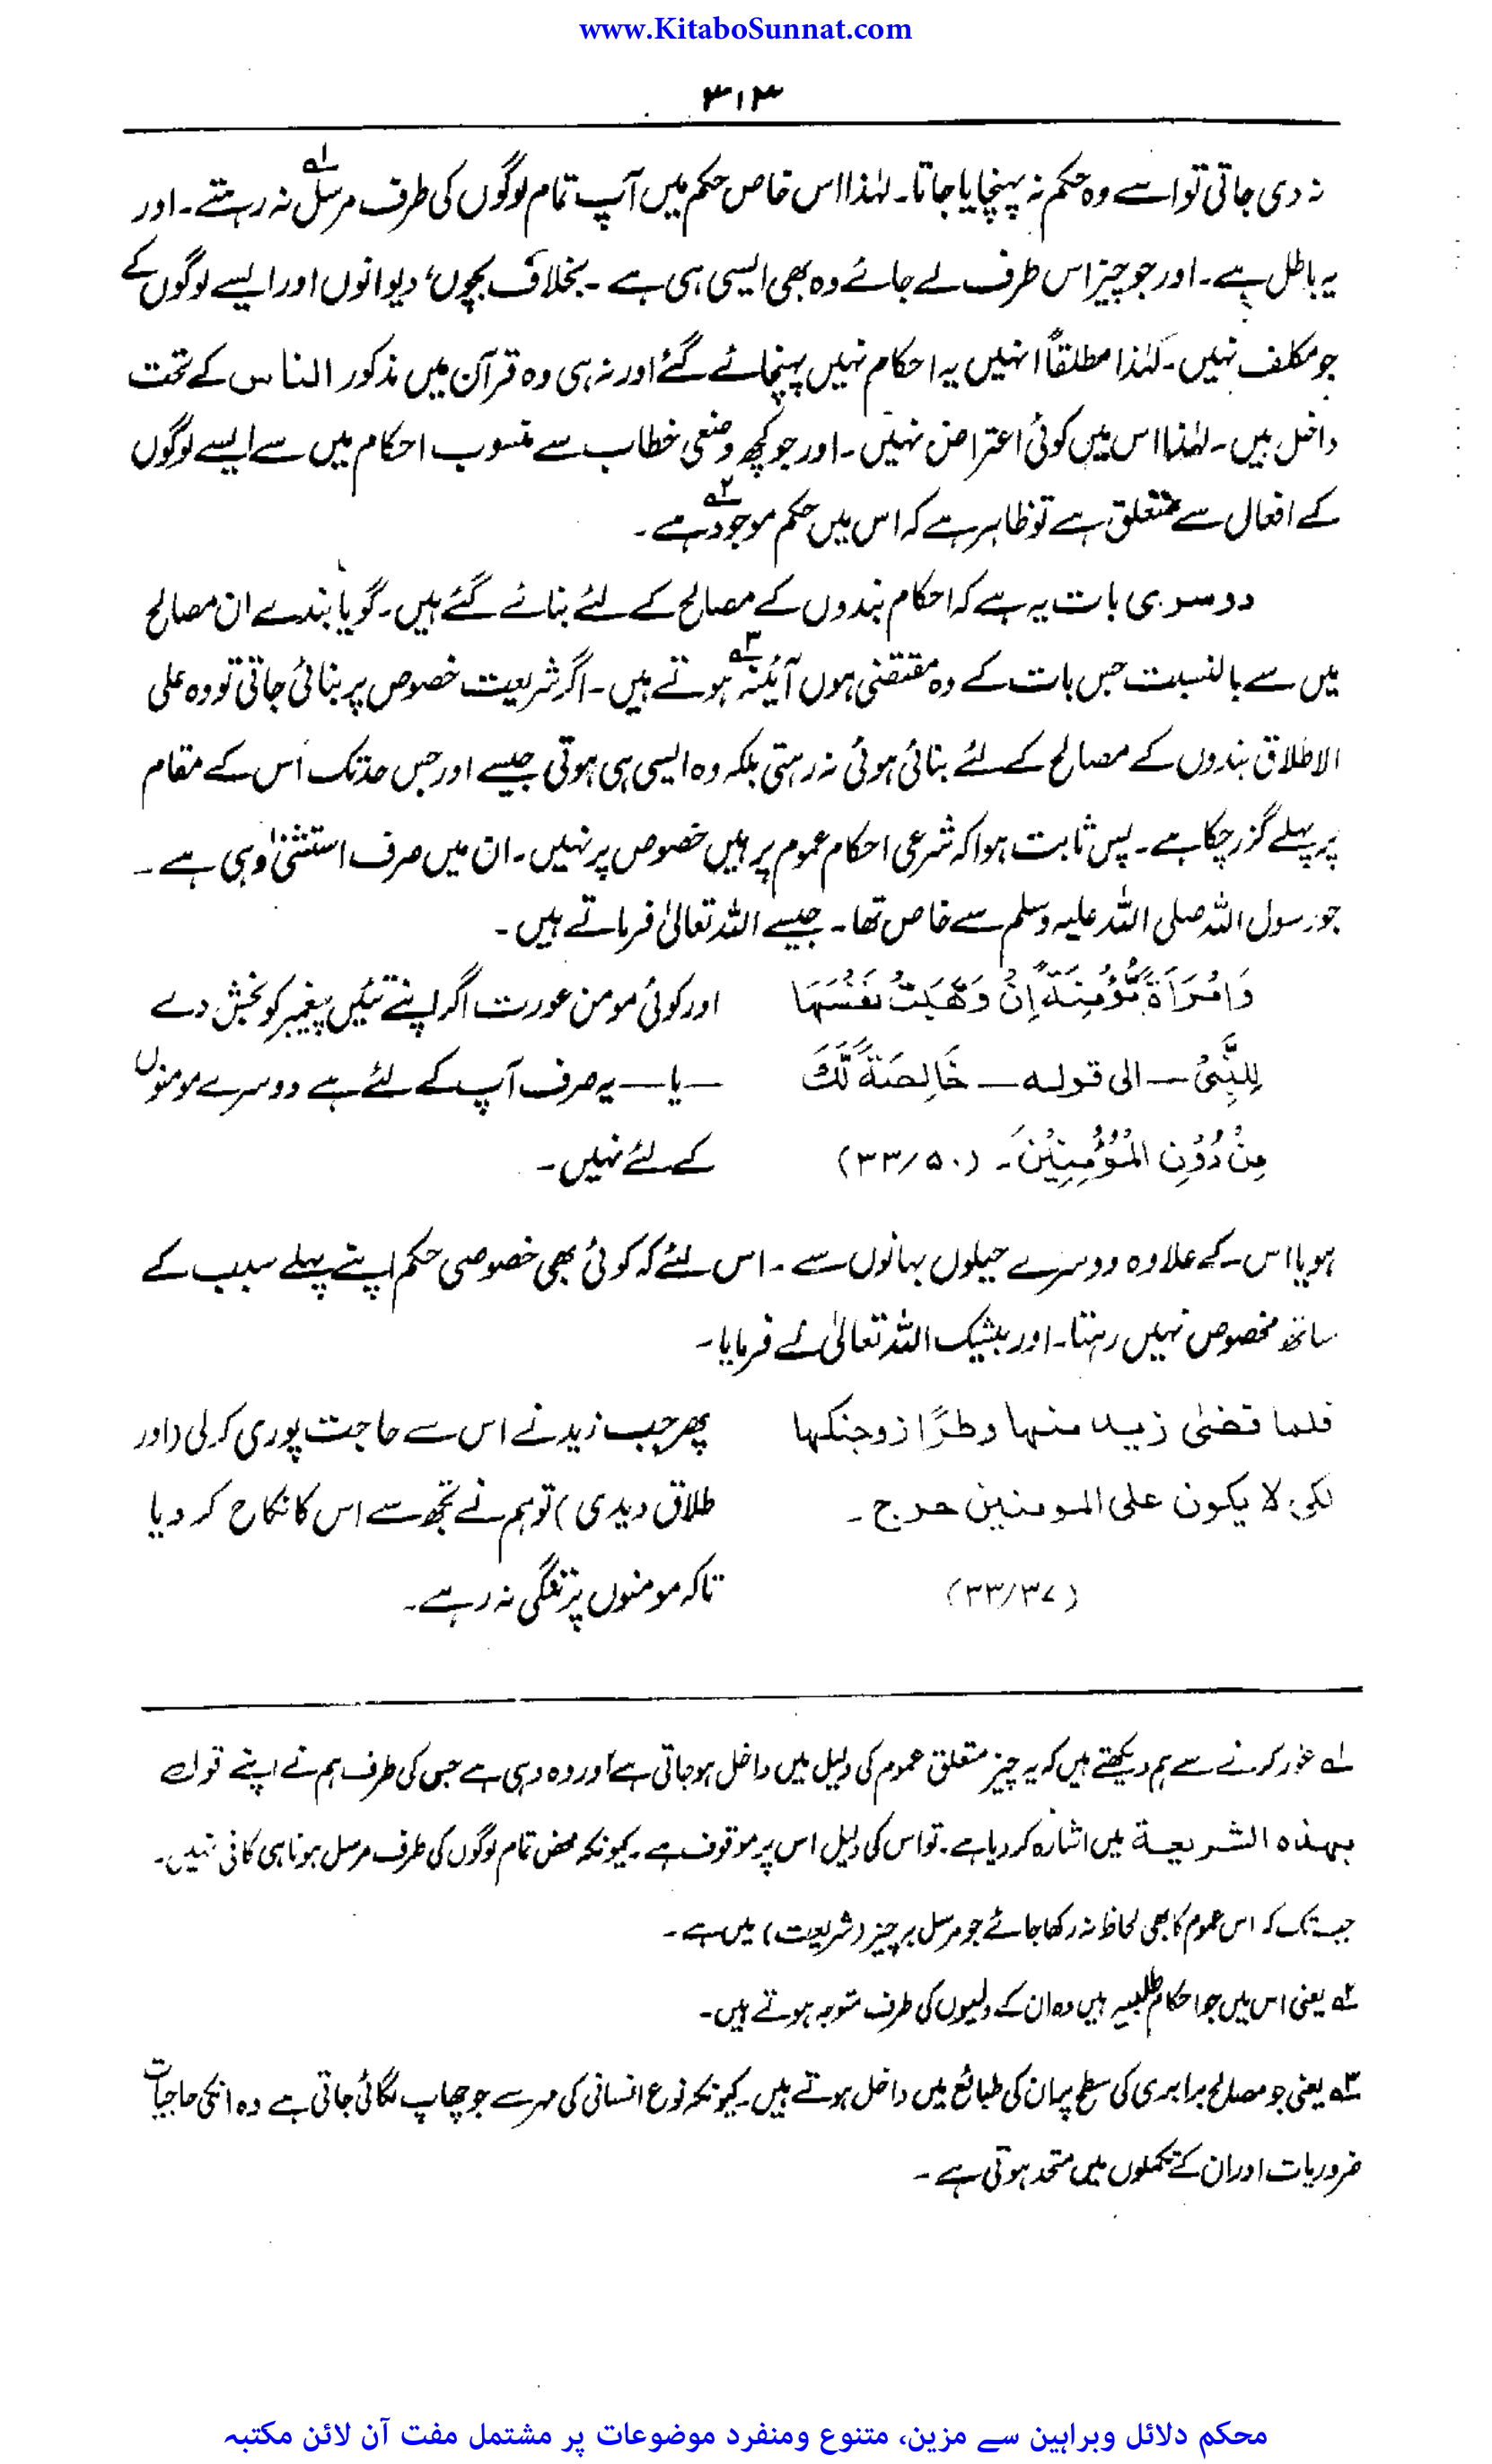 www.KitaboSunnat.com
۳۱۳
نہ دی جاتی تو اسے وہ حکم نہ پہنچایا جاتا۔ لہٰذا اس خاص حکم میں آپ تمام لوگوں کی طرف مرسل نہ رہتے۔ اور ۱ھ
یہ باطل ہے۔ اور جو چیز اس طرف لے جائے وہ بھی ایسی ہی ہے۔ بخلاف بچوں، دیوانوں اور ایسے لوگوں کے
جو مکلف نہیں۔ لہٰذا مطلقاً انہیں یہ احکام نہیں پہنچائے گئے اور نہ ہی وہ قرآن میں مذکور الناس کے تحت
داخل ہیں۔ لہٰذا اس میں کوئی اعتراض نہیں۔ اور جو کچھ وضعی خطاب سے منسوب احکام میں سے ایسے لوگوں
کے افعال سے متعلق ہے تو ظاہر ہے کہ اس میں حکم موجود ۲ھ ہے۔
دوسری بات یہ ہے کہ احکام بندوں کے مصالح کے لئے بنائے گئے ہیں۔ گویا بندے ان مصالح
میں سے بالنسبت جس بات کے وہ مقتضی ہوں آئینہ ۳ھ ہوتے ہیں۔ اگر شریعت خصوص پر بنائی جاتی تو وہ علی
الاطلاق بندوں کے مصالح کے لئے بنائی ہوئی نہ رہتی بلکہ وہ ایسی ہی ہوتی جیسے اور جس حد تک اس کے مقام
پر پہلے گزر چکا ہے۔ پس ثابت ہوا کہ شرعی احکام عموم پر ہیں خصوص پر نہیں۔ ان میں صرف استثنیٰ وہی ہے۔
جو رسول اللہ صلی اللہ علیہ وسلم سے خاص تھا۔ جیسے اللہ تعالیٰ فرماتے ہیں۔
وَامْرَاَةً مُّؤْمِنَةً اِنْ وَّهَبَتْ نَفْسَهَا اور کوئی مومن عورت اگر اپنے تئیں پیغمبر کو بخش دے
لِلنَّبِیِّ — الی قولہ — خَالِصَةً لَّكَ — یا — یہ صرف آپ کے لئے ہے دوسرے مومنوں
مِنْ دُوْنِ الْمُؤْمِنِيْنَ۔ (۳۳/۵۰) کے لئے نہیں۔
ہو یا اس کے علاوہ دوسرے حیلوں بہانوں سے۔ اس لئے کہ کوئی بھی خصوصی حکم اپنے پہلے سبب کے
ساتھ مخصوص نہیں رہتا۔ اور بیشک اللہ تعالیٰ نے فرمایا۔
فلما قضیٰ زید منہا وطرًا زوجنکہا پھر جب زید نے اس سے حاجت پوری کر لی (اور
لکی لا یکون علی المومنین حرج۔ طلاق دیدی) تو ہم نے تجھ سے اس کا نکاح کر دیا
(۳۳/۳۷) تاکہ مومنوں پر تنگی نہ رہے۔
۱ھ غور کرنے سے ہم دیکھتے ہیں کہ یہ چیز متعلق عموم کی دلیل میں داخل ہو جاتی ہے اور وہ وہی ہے جس کی طرف ہم نے اپنے قول
بہذہ الشریعۃ میں اشارہ کر دیا ہے۔ تو اس کی دلیل اس پر موقوف ہے۔ کیونکہ محض تمام لوگوں کی طرف مرسل ہونا ہی کافی نہیں۔
جب تک کہ اس عموم کا بھی لحاظ نہ رکھا جائے جو مرسل بہ چیز (شریعت) میں ہے۔
۲ھ یعنی اس میں جو احکام طلبیہ ہیں وہ ان کے ولیوں کی طرف متوجہ ہوتے ہیں۔
۳ھ یعنی جو مصالح برابری کی سطح پر ان کی طبائع میں داخل ہوتے ہیں۔ کیونکہ نوع انسانی کی مہر سے جو چھاپ لگائی جاتی ہے وہ انکی حاجیات
ضروریات اور ان کے تکملوں میں متحد ہوتی ہے۔
محکم دلائل وبراہین سے مزین، متنوع ومنفرد موضوعات پر مشتمل مفت آن لائن مکتبہ